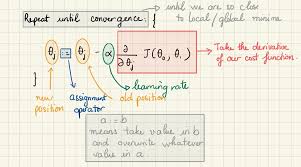 until we are so close
to local / global minima
Repeat until convergence: {
θj := θj - α ∂/∂θj J(θ₀, θ₁)
Take the derivative
of our cost function.
}
learning rate
new
position
assignment
operator
old position
a := b
means take value in b
and overwrite whatever
value in a.